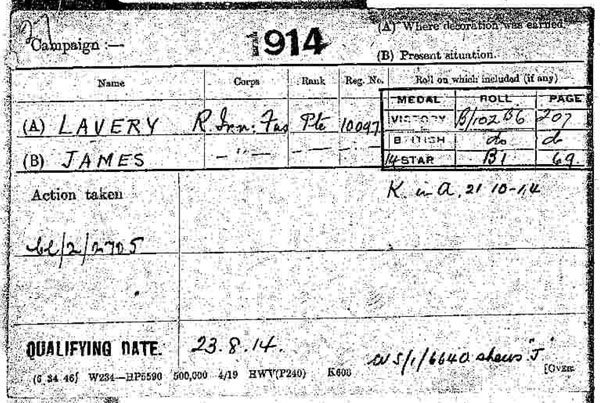 Campaign :— 1914 (A) Where decoration was earned.
(B) Present situation.
Name Corps Rank Reg. No. Roll on which included (if any)
MEDAL ROLL PAGE
(A) LAVERY R. Inn: Fus Pte 10097 VICTORY B/102 B6 207
(B) JAMES — " — — " — BRITISH do d
14 STAR B1 69.
Action taken K in A. 21-10-14
QUALIFYING DATE. 23.8.14.
W 5/1/6640 shews "J"
(6 34 46) W234—HP5590 500,000 4/19 HWV(P240) K608 [OVER.